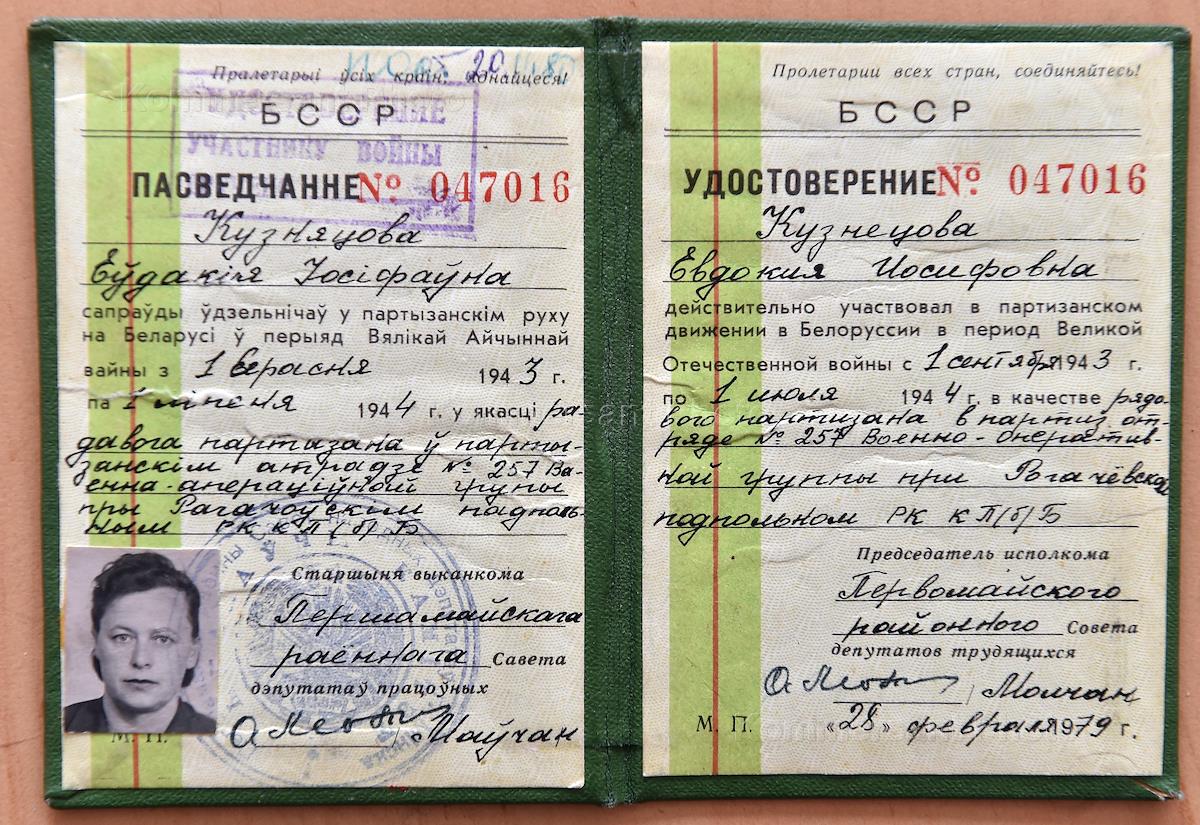 Пралетарыі ўсіх краін, яднайцеся!
БССР
УДОСТОВЕРЕНИЕ
УЧАСТНИКУ ВОЙНЫ
ПАСВЕДЧАННЕ № 047016
Кузняцова
Еўдакія Іосіфаўна
сапраўды ўдзельнічаў у партызанскім руху
на Беларусі ў перыяд Вялікай Айчыннай
вайны з 1 верасня 1943 г.
па 1 ліпеня 1944 г. у якасці ра-
давога партызана ў парты-
занскім атрадзе № 257 Ва-
енна-аперацыўнай групы
пры Рагачоўскім падполь-
ным РК КП(б)Б
Старшыня выканкома
Першамайскага
раённага Савета
дэпутатаў працоўных
Маўчан
М. П.
Пролетарии всех стран, соединяйтесь!
БССР
УДОСТОВЕРЕНИЕ № 047016
Кузнецова
Евдокия Иосифовна
действительно участвовал в партизанском
движении в Белоруссии в период Великой
Отечественной войны с 1 сентября 1943 г.
по 1 июля 1944 г. в качестве рядо-
вого партизана в партиз. от-
ряде № 257 Военно-оператив-
ной группы при Рогачёвском
подпольном РК КП(б)Б
Председатель исполкома
Первомайского
районного Совета
депутатов трудящихся
Молчан
М. П. «28» февраля 1979 г.